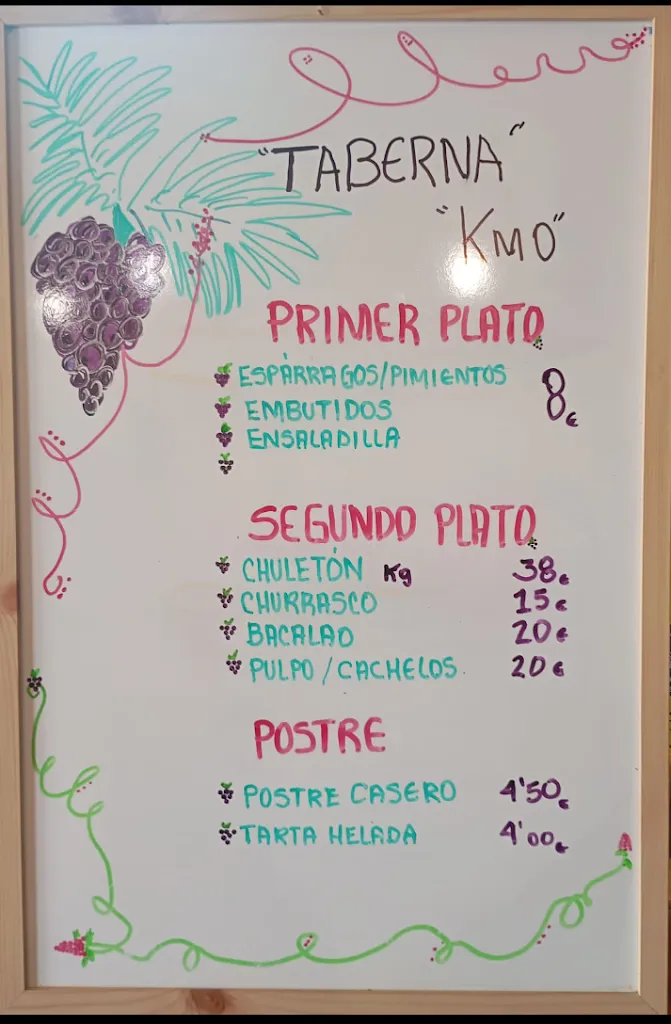 "TABERNA"
"KMO"
PRIMER PLATO
ESPÁRRAGOS/PIMIENTOS 8€
EMBUTIDOS
ENSALADILLA
SEGUNDO PLATO
CHULETÓN Kg 38€
CHURRASCO 15€
BACALAO 20€
PULPO/CACHELOS 20€
POSTRE
POSTRE CASERO 4'50€
TARTA HELADA 4'00€